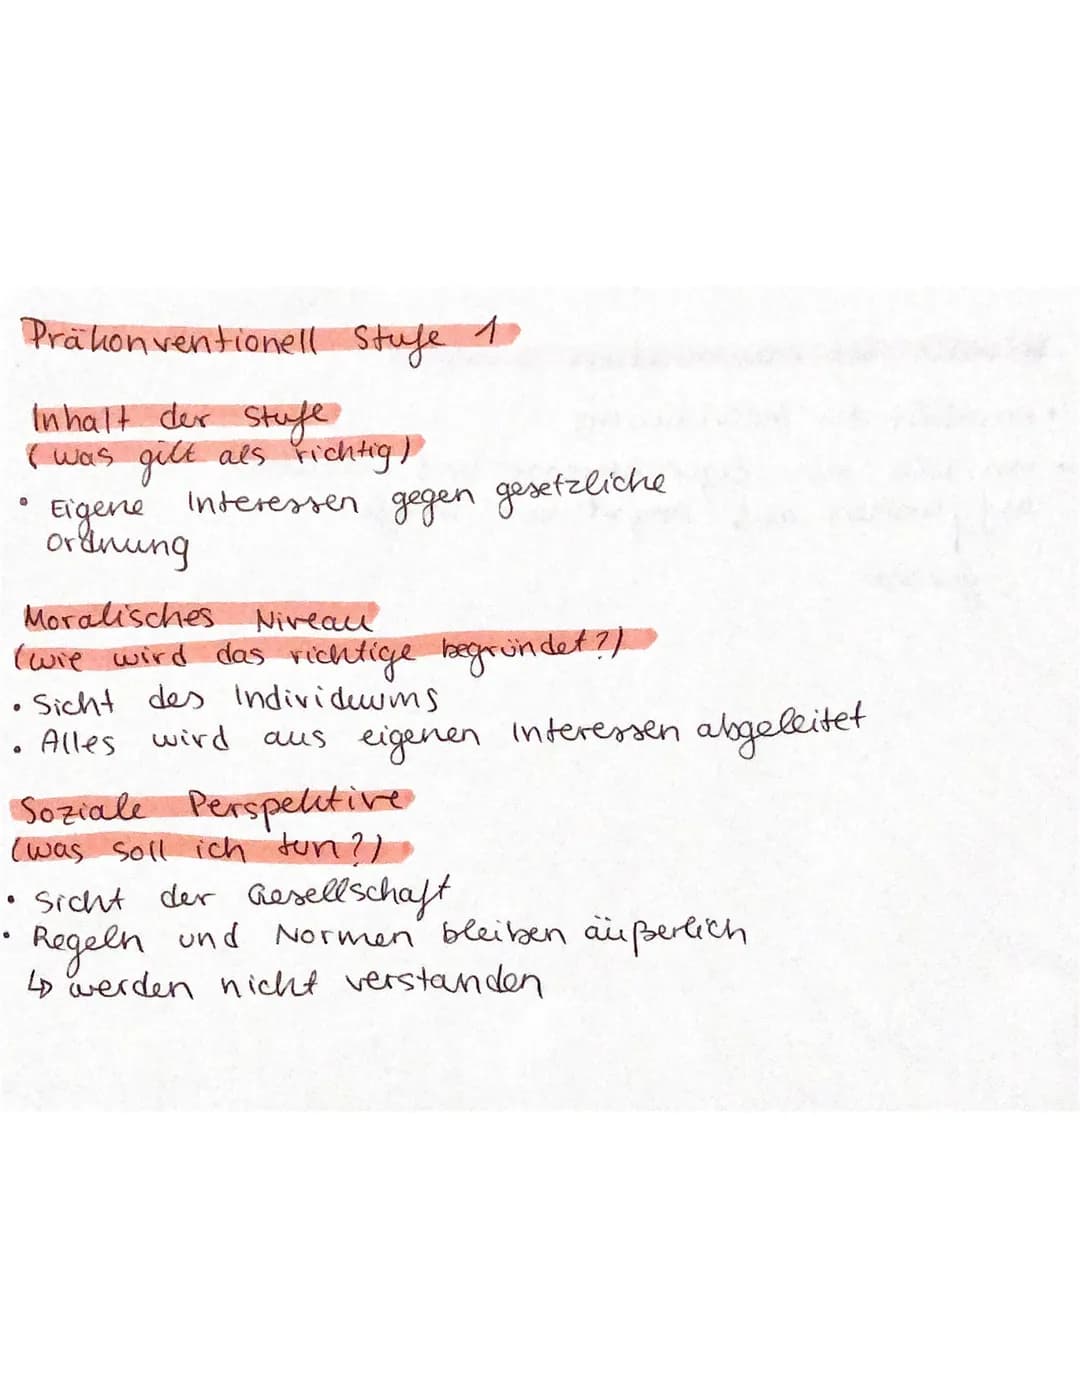 Präkonventionell Stufe 1
Inhalt der Stufe
(was gilt als richtig)
• Eigene Interessen gegen gesetzliche
ordnung
Moralisches Niveau
(wie wird das richtige begründet?)
• Sicht des Individuums
• Alles wird aus eigenen Interessen abgeleitet
Soziale Perspektive
(was soll ich tun?)
• Sicht der Gesellschaft
• Regeln und Normen bleiben äußerlich
↳ werden nicht verstanden